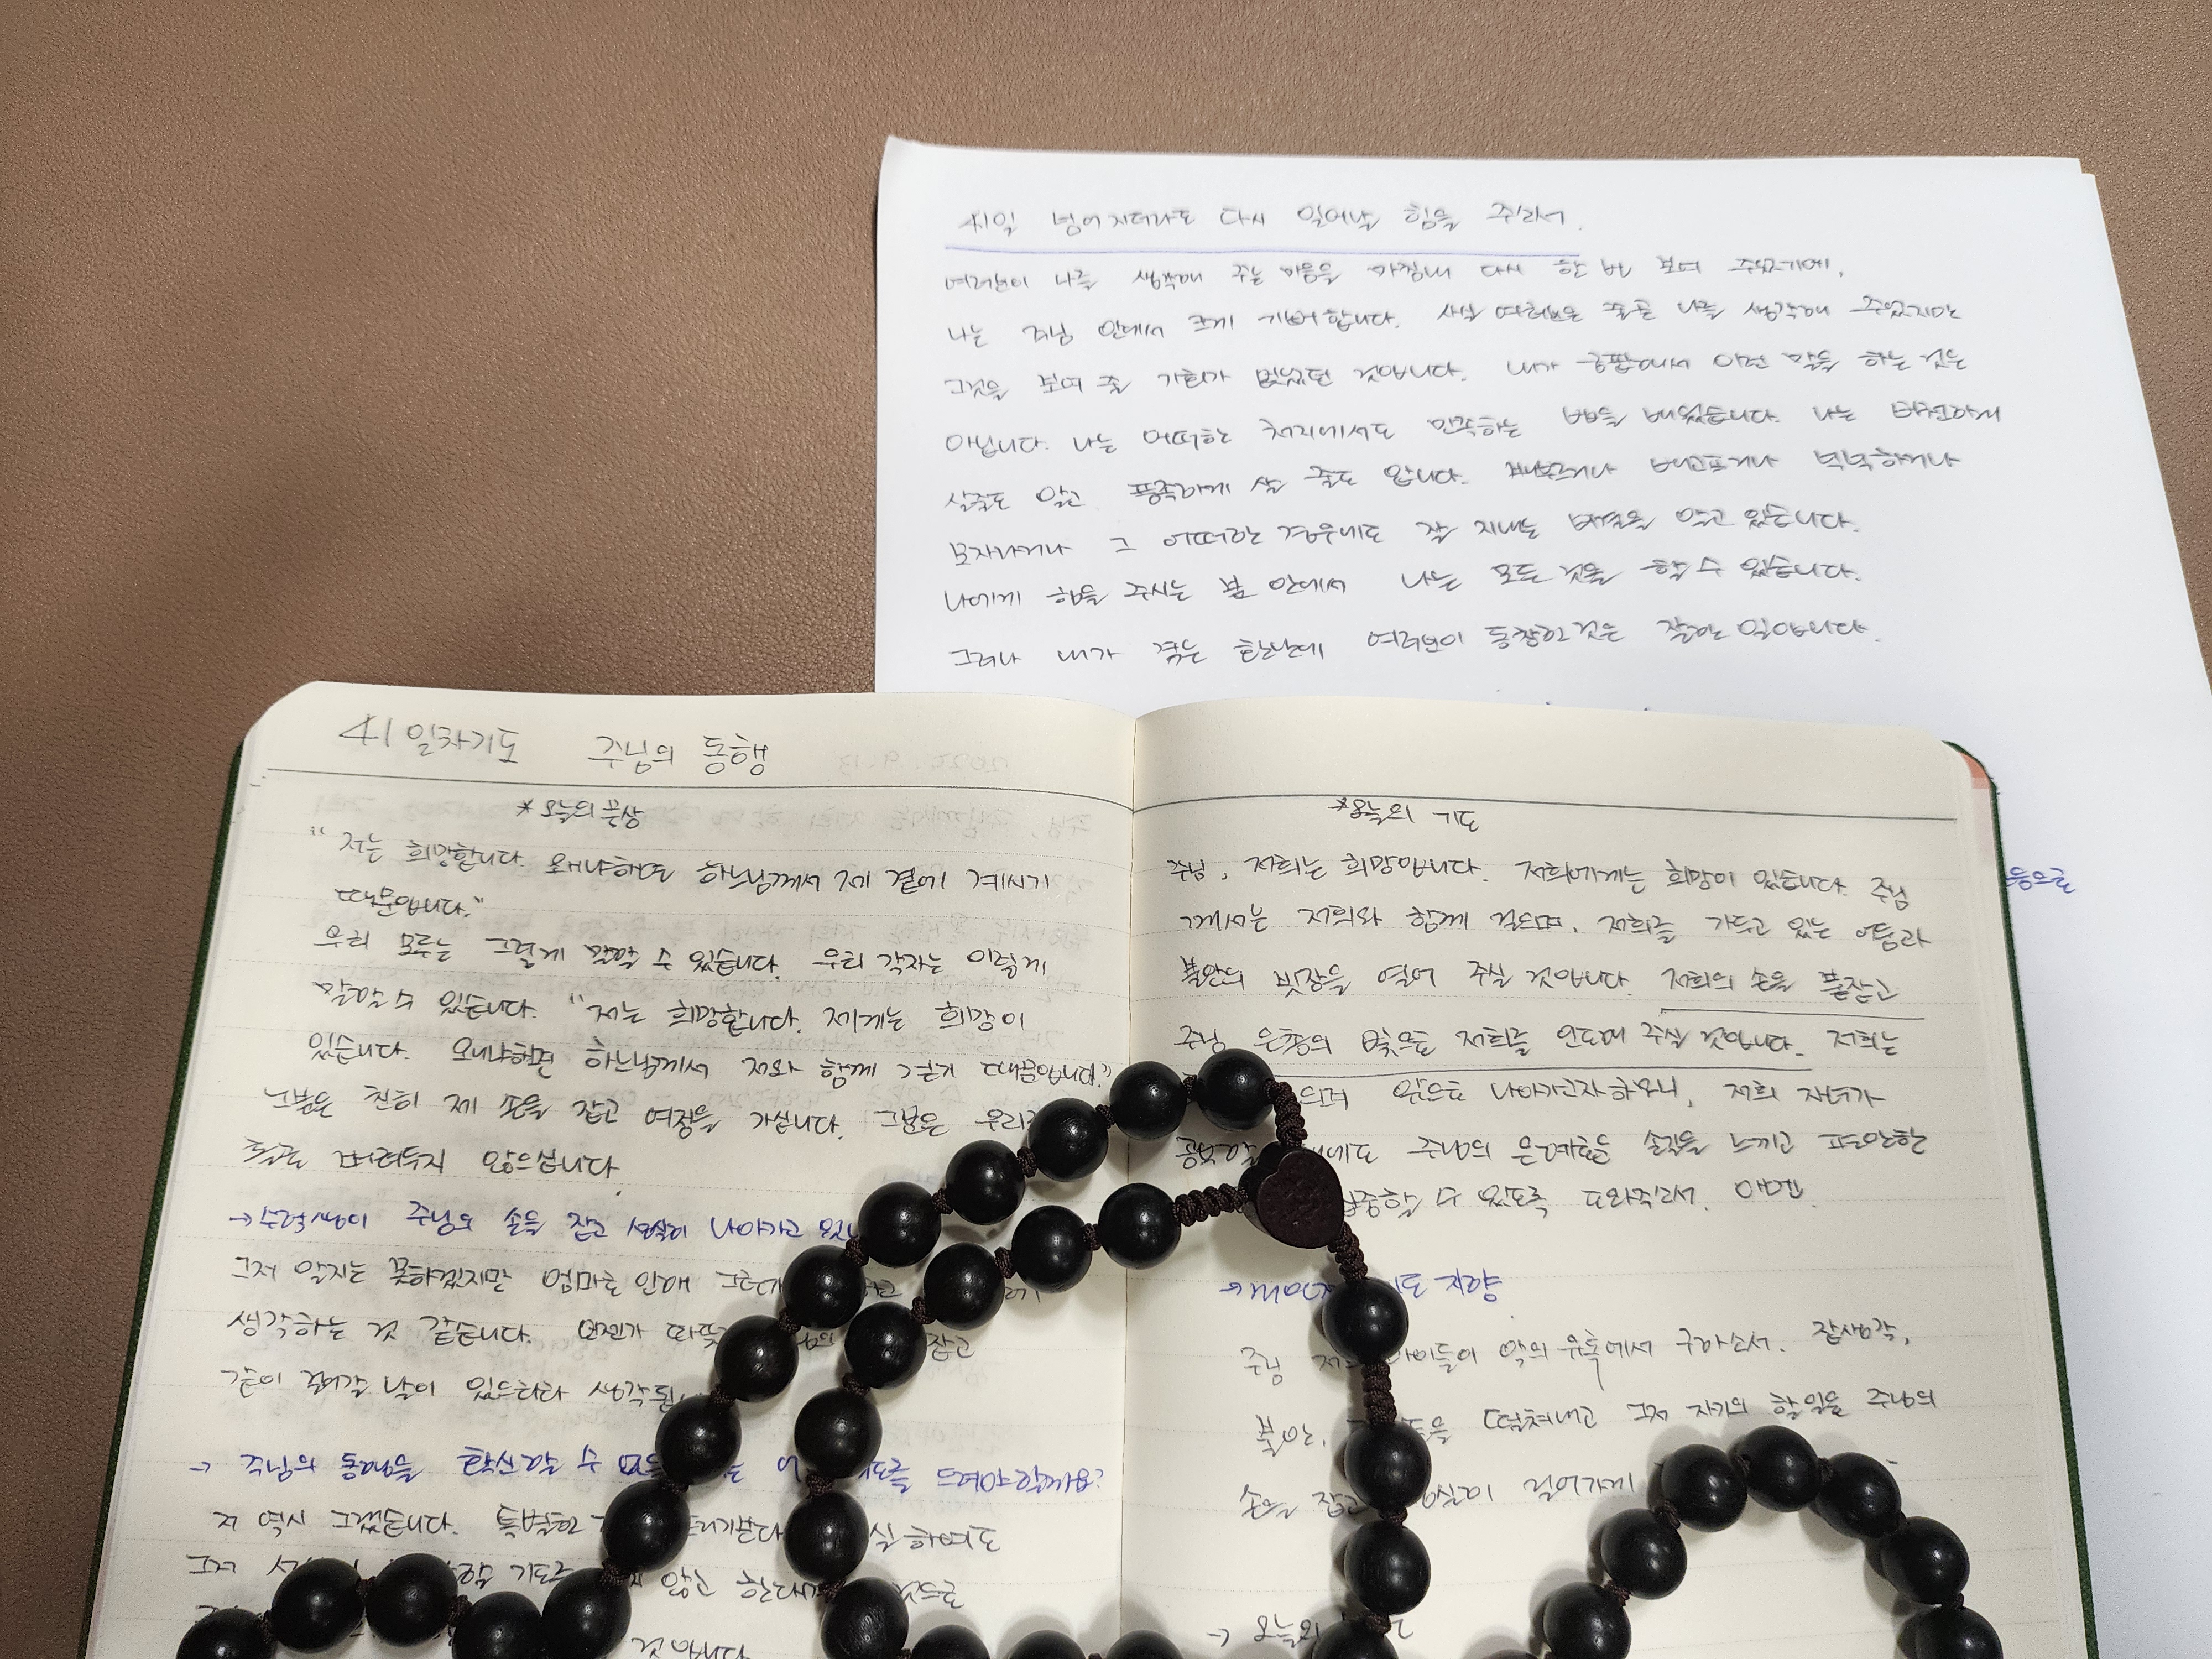 41일 넘어지더라도 다시 일어날 힘을 주소서.
여러분이 나를 생각해 주는 마음을 마침내 다시 한 번 보여 주었기에,
나는 주님 안에서 크게 기뻐합니다. 사실 여러분은 줄곧 나를 생각해 주었지만
그것을 보여 줄 기회가 없었던 것입니다. 내가 궁핍해서 이런 말을 하는 것은
아닙니다. 나는 어떠한 처지에서도 만족하는 법을 배웠습니다. 나는 비천하게
살줄도 알고 풍족하게 살 줄도 압니다. 배부르거나 배고프거나 넉넉하거나
모자라거나 그 어떠한 경우에도 잘 지내는 비결을 알고 있습니다.
나에게 힘을 주시는 분 안에서 나는 모든 것을 할 수 있습니다.
그러나 내가 겪는 환난에 여러분이 동참한 것은 잘한 일입니다.
등으로
41일차기도 주님의 동행
*오늘의 묵상
"저는 희망합니다. 왜냐하면 하느님께서 제 곁에 계시기
때문입니다."
우리 모두는 그렇게 말할 수 있습니다. 우리 각자는 이렇게
말할 수 있습니다. "저는 희망합니다. 제게는 희망이
있습니다. 왜냐하면 하느님께서 저와 함께 걷기 때문입니다."
그분은 친히 제 손을 잡고 여정을 가십니다. 그분은 우리
홀로 버려두지 않으십니다
→수험생이 주님의 손을 잡고 성실히 나아가고
그저 알지는 못하겠지만 엄마로 인해
생각하는 것 같습니다. 언젠가 잡고
같이 걸어갈 날이 있으리라
→ 주님의 동행을 확신할 수 드려야할까요?
저 역시 그렇습니다. 특별한 하여도
그저 않고
것입니다
*오늘의 기도
주님, 저희는 희망입니다. 저희에게는 희망이 있습니다. 주님
께서는 저희와 함께 걸으며, 저희를 가두고 있는 어둠과
불안의 빗장을 열어 주실 것입니다. 저희의 손을 붙잡고
주님 은총의 빛으로 저희를 인도해 주실 것입니다. 저희는
앞으로 나아가고자하오니, 저희 자녀가
공부할 주님의 은혜로운 손길을 느끼고 편안한
집중할 수 있도록 도와주소서. 아멘.
→ 지향
주님 아이들이 악의 유혹에서 구하소서. 잡생각,
불안, 떨쳐내고 그저 자기의 할일을 주님의
손을 잡고 걸어가게
→ 오늘의